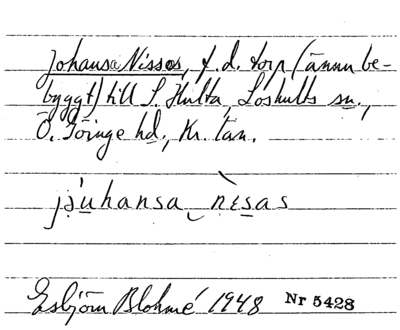 Johansa Nissos, f.d. torp (ännu be-
byggt) till S. Hulta, Loshults sn.,
Ö. Göinge hd., Kr. län.
Esbjörn Blohmé 1948 Nr 5428